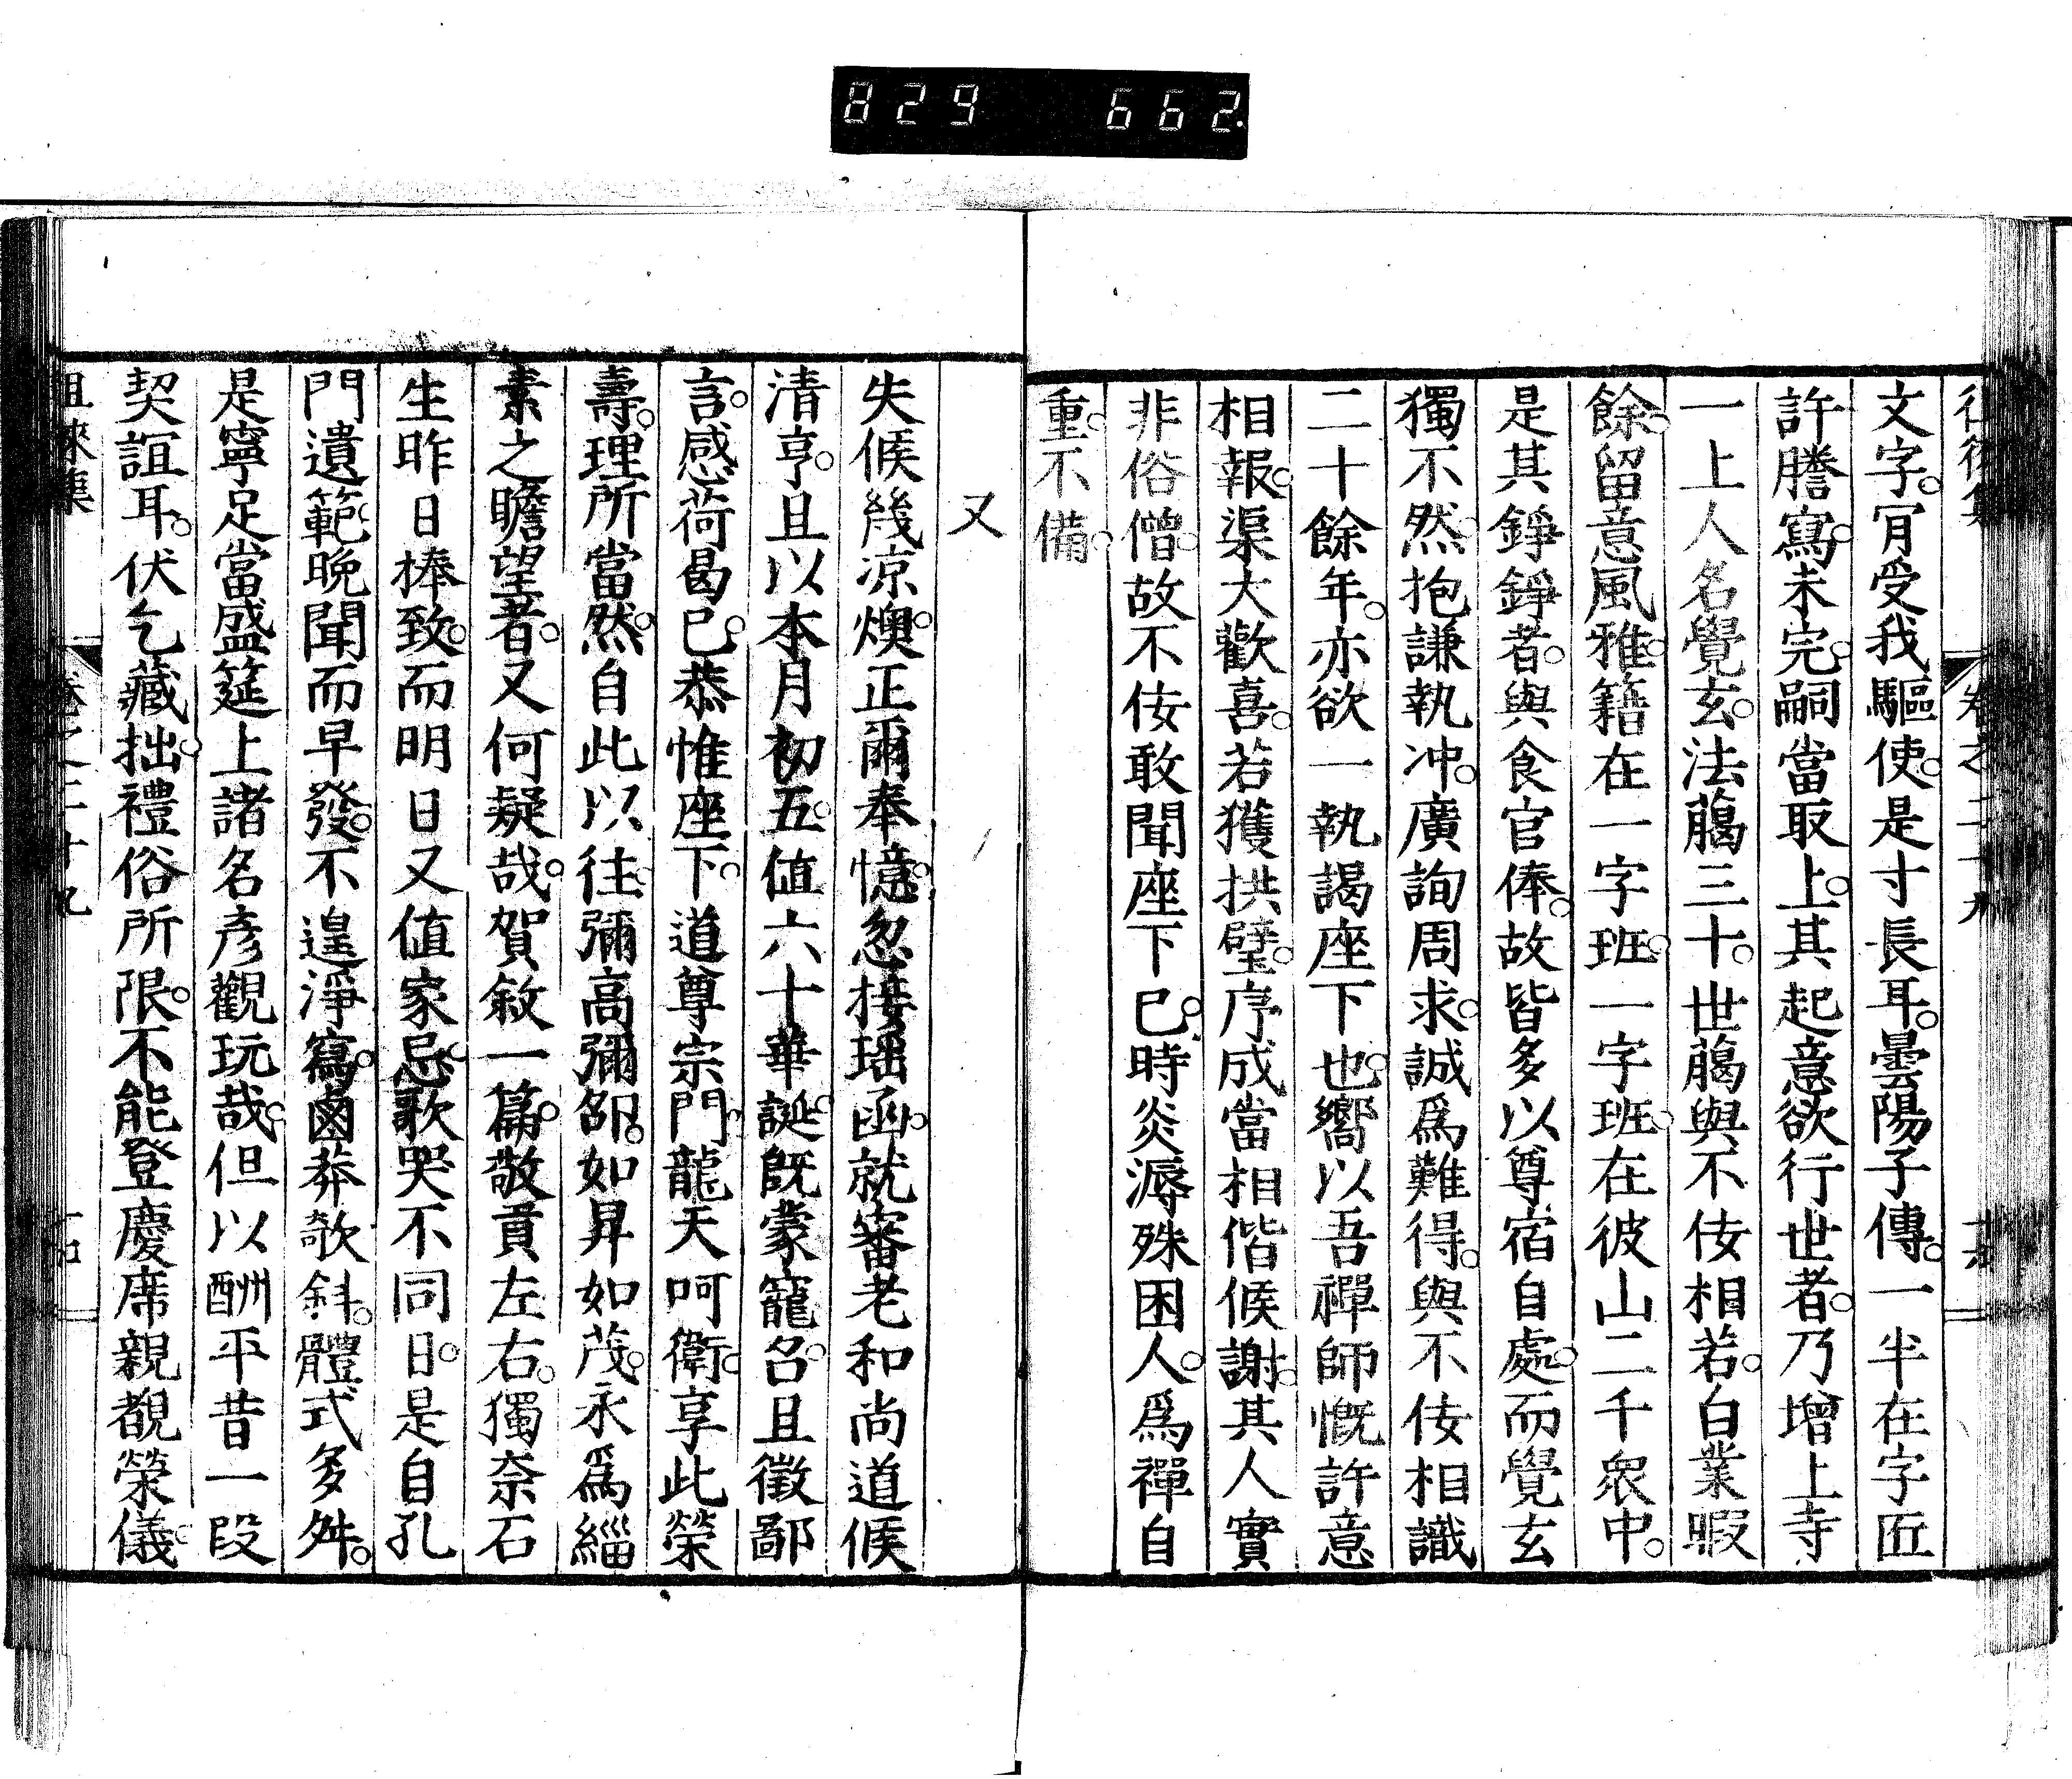 829 662.
文字。肎受我驅使。是寸長耳。曇陽子傳。一半在字匠
許謄寫。未完。嗣當取上。其起意欲行世者。乃增上寺
一上人名覺玄。法﨟三十。世﨟與不佞相若。白業暇
餘。留意風雅。籍在一字班。一字班。在彼山二千衆中。
是其錚錚者。與食官俸。故皆多以尊宿自處。而覺玄
獨不然。抱謙執冲。廣詢周求。誠爲難得。與不佞相識
二十餘年。亦欲一執謁座下也。嚮以吾禪師慨許意
相報。渠大歡喜。若獲拱璧。序成當相偕候謝。其人實
非俗僧。故不佞敢聞座下已。時炎溽殊困人。爲禪自
重。不備。
又
失候幾凉燠。正爾奉憶。忽接瑶函。就審老和尚道候
清亨。且以本月初五。值六十華誕。既蒙寵名。且徵鄙
言。感荷曷已。恭惟座下。道尊宗門。龍天呵衛。享此榮
壽。理所當然。自此以往。彌高彌邵。如昇如茂。永爲緇
素之瞻望者。又何疑哉。賀敘一篇。敬貢左右。獨奈石
生昨日捧致。而明日又值家忌。歌哭不同日。是自孔
門遺範。晚聞而早發。不遑淨寫。鹵莽欹斜。體式多舛。
是寧足當盛筵上諸名彥觀玩哉。但以酬平昔一段
契誼耳。伏乞藏拙。禮俗所限。不能登慶席親覩榮儀。
徂徠集 卷之二十九